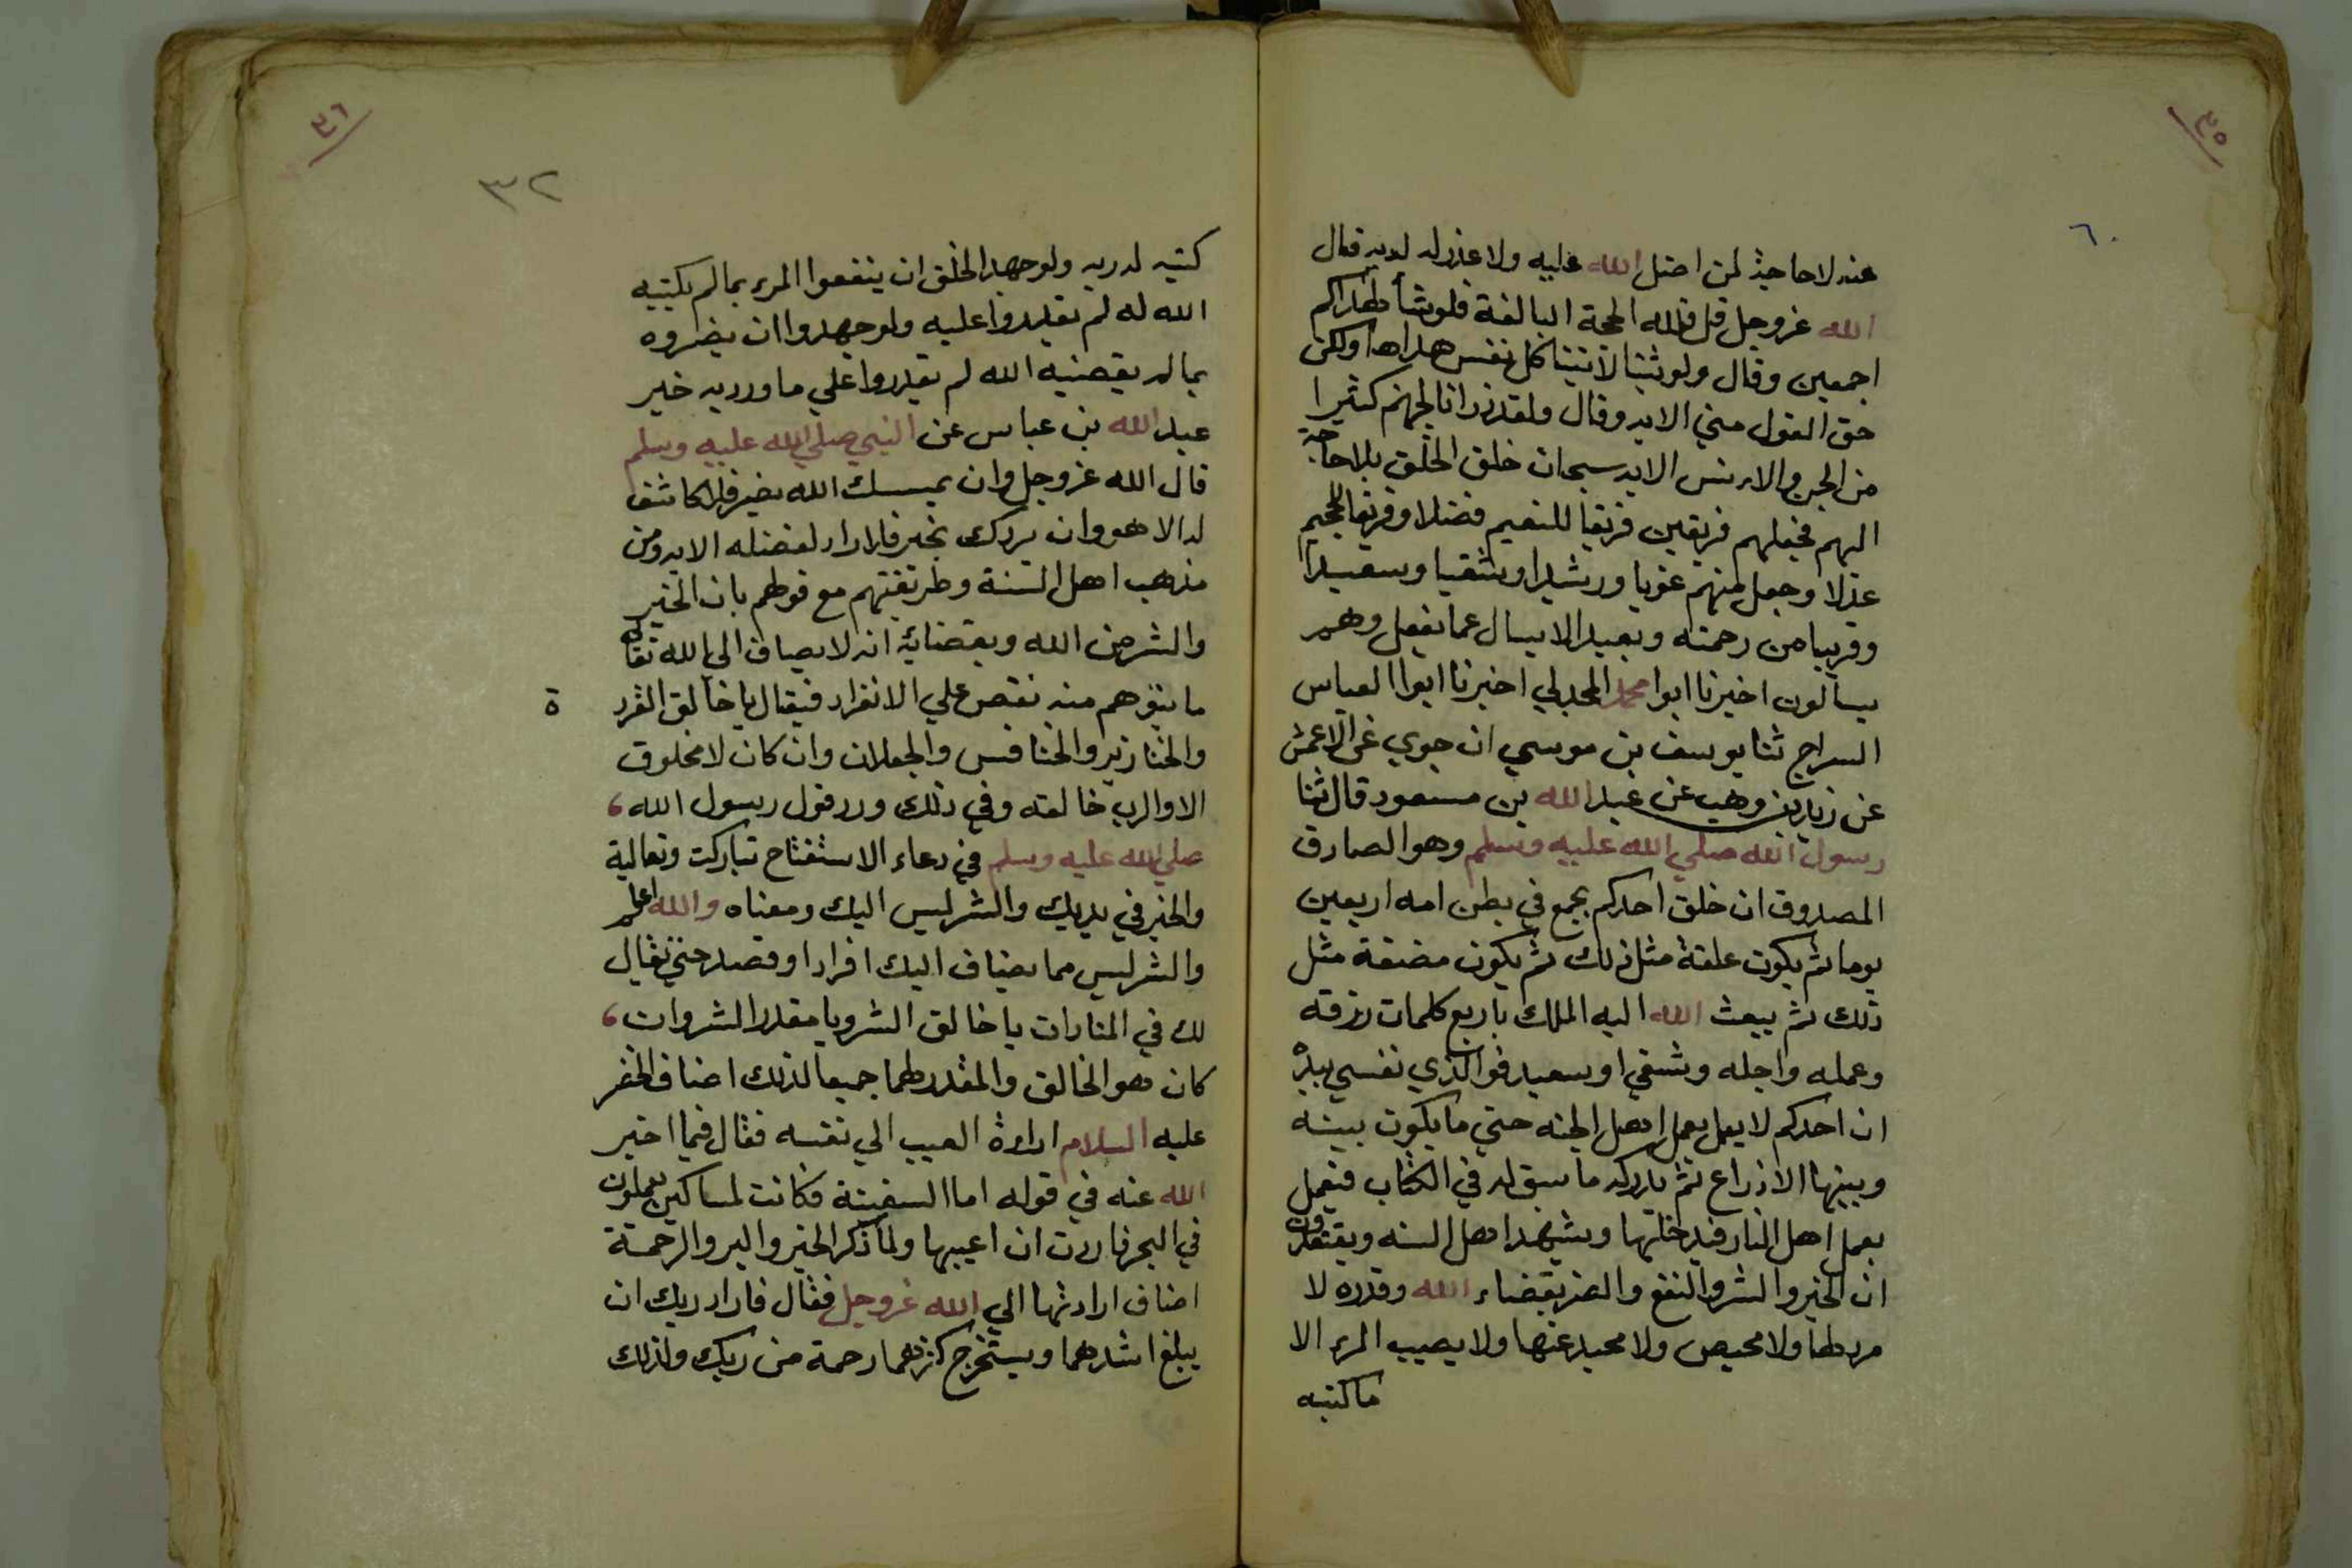 ٣٥
٦٠
عنه لا حاجة لمن اضل الله عليه ولا عذر له لديه قال
الله عز وجل قل فلله الحجة البالغة فلو شأ لهداكم
اجمعين وقال ولو شينا لاتينا كل نفس هداها ولكن
حق القول مني الايه وقال ولقد ذرانا لجهنم كثيرا
من الجن والانس الايه سبحان خلق الخلق بلا حاجة
اليهم فجعلهم فريقين فريقا للنعيم فضلا وفريقا للجحيم
عدلا وجعل منهم غويا ورشيدا وشقيا وسعيدا
وقريبا من رحمته وبعيدا لا يسال عما يفعل وهم
يسألون اخبرنا ابوا محمد المجدلي اخبرنا ابوا العباس
السراج ثنا يوسف بن موسي ان جوي عن الاعمش
عن زيد بن وهب عن عبد الله بن مسعود قال ثنا
رسول الله صلي الله عليه وسلم وهو الصادق
المصدوق ان خلق احدكم يجمع في بطن امه اربعين
يوما ثم يكون علقة مثل ذلك ثم يكون مضغة مثل
ذلك ثم يبعث الله اليه الملك باربع كلمات رزقه
وعمله واجله وشقي او سعيد فوالذي نفسي بيده
ان احدكم لا يعمل بعمل اهل الجنه حتي ما يكون بينه
وبينها الا ذراع ثم يدركه ما سبق له في الكتاب فيعمل
بعمل اهل النار فيدخلها ويشهد اهل السنه ويعتقدون
ان الخير والشر والنفع والضر بقضاء الله وقدره لا
مرد لها ولا محيص ولا محيد عنها ولا يصيب المرء الا
ما كتبه
٣٦
٣٢
كتبه له ربه ولو جهد الخلق ان ينفعوا المرء بما لم يكتبه
الله له لم يقدروا عليه ولو جهدوا ان يضروه
بما لم يقضيه الله لم يقدروا علي ما ورد به خبر
عبد الله بن عباس عن النبي صلي الله عليه وسلم
قال الله عز وجل وان يمسسك الله بضر فلا كاشف
له الا هو وان يردك بخير فلا راد لفضله الايه ومن
مذهب اهل السنة وطريقتهم مع قولهم بان الخير
والشر من الله وبقضائه انه لا يضاف الي الله تعالى
ما يتوهم منه نقص علي الانفراد فيقال يا خالق القرد ة
والخنازير والخنافس والجعلان وان كان لا مخلوق
الا والرب خالقه وفي ذلك ورد قول رسول الله
صلي الله عليه وسلم في دعاء الاستفتاح تباركت وتعالية
والخير في يديك والشر ليس اليك ومعناه والله اعلم
والشر ليس مما يضاف اليك افرادا وقصد حتي يقال
لك في المنادات يا خالق الشر ويا مقدر الشر وان
كان هو الخالق والمقدر لهما جميعا لذلك اضاف الخضر
عليه السلام ارادة العيب الي نفسه فقال فيما اخبر
الله عنه في قوله اما السفينة فكانت لمساكين يعملون
في البحر فاردت ان اعيبها ولما ذكر الخير والبر والرحمة
اضاف ارادتها الي الله عز وجل فقال فاراد ربك ان
يبلغا اشدهما ويستخرج كنزهما رحمة من ربك ولذلك